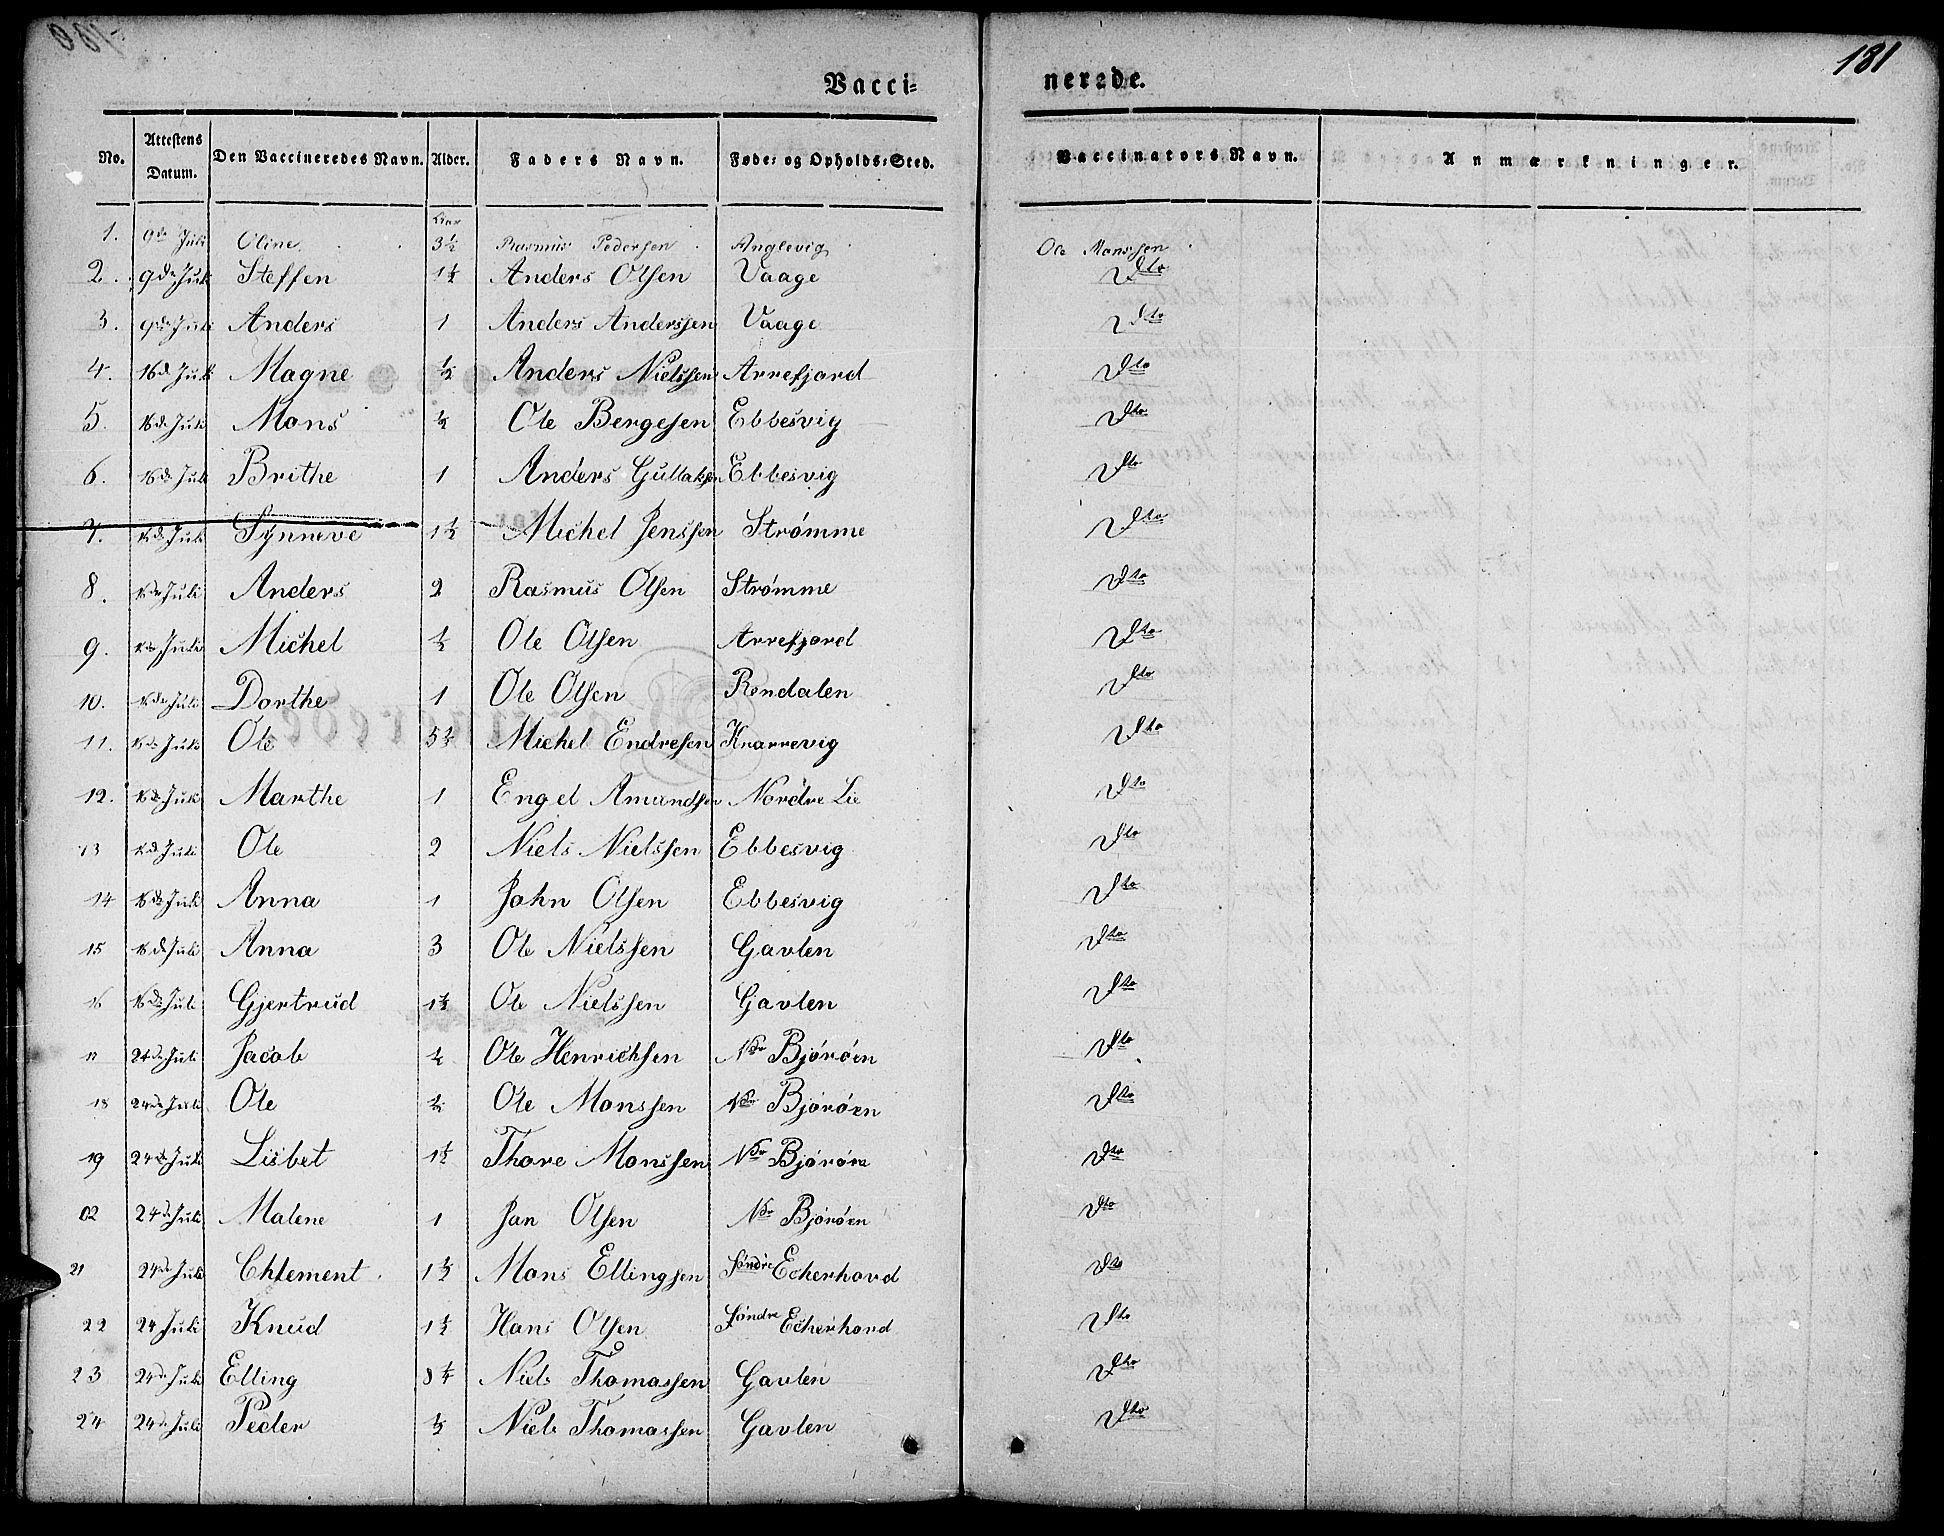 181
Vacci= nerede.
No. Attestens Datum. Den Vaccineredes Navn. Alder. Faders Navn. Føde= og Opholds=Sted. Vaccinators Navn. Anmærkninger.
1. 9de Juli Oline 3½ Rasmus Pedersen Anglevig Ole Monssen
2. 9de Juli Steffen 1½ Anders Olsen Vaage Dto
3. 9de Juli Anders 1 Anders Anderssen Vaage Dto
4. 16de Juli Magne ½ Anders Nielssen Arrefjord Dto
5. 16de Juli Mons ½ Ole Bergesen Ebbesvig Dto
6. 16de Juli Brithe 1 Anders Gullaksen Ebbesvig Dto
7. 16de Juli Synneve 1½ Michel Jenssen Strømme Dto
8. 16de Juli Anders 2 Rasmus Olsen Strømme Dto
9. 16de Juli Michel ½ Ole Olsen Arrefjord Dto
10. 16de Juli Dorthe 1 Ole Olsen Rendalen Dto
11. 16de Juli Ole 5½ Michel Endresen Knarrevig Dto
12. 16de Juli Marthe 1 Engel Amundsen Nordre Lie Dto
13 16de Juli Ole 2 Niels Nielssen Ebbesvig Dto
14 16de Juli Anna 1 John Olsen Ebbesvig Dto
15 16de Juli Anna 3 Ole Nielssen Gavlen Dto
16 16de Juli Gjertrud 1½ Ole Nielssen Gavlen Dto
17 24de Juli Jacob ½ Ole Henrichsen Ndr Bjørøen Dto
18 24de Juli Ole ½ Ole Monssen Ndr Bjørøen Dto
19 24de Juli Lisbet 1½ Thore Monssen Ndr Bjørøen Dto
02 24de Juli Malene 1 Jan Olsen Ndr Bjørøen Dto
21 24de Juli Chlement 1½ Mons Ellingsen Søndre Echerhovd Dto
22 24 Juli Knud 1½ Hans Olsen Søndre Echerhovd Dto
23 24de Juli Elling 8½ Niels Thomassen Gavlen Dto
24 24de Juli Peder ½ Niels Thomassen Gavlen Dto